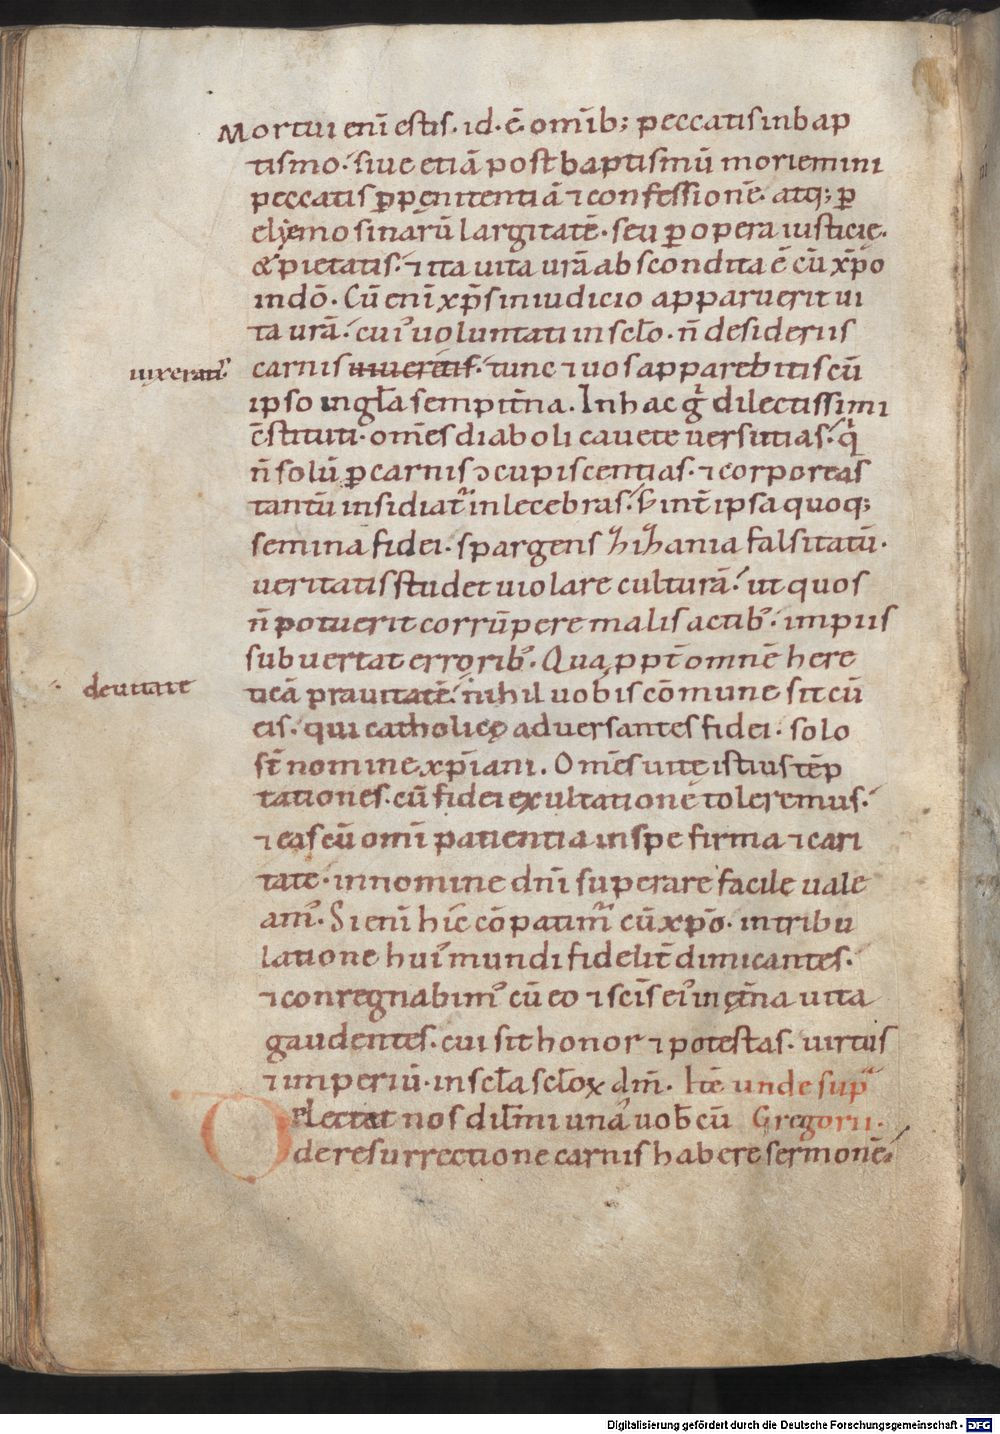 Mortui enī estis· id· ē· omīb; peccatis in bap
tismo· siue etiā post baptismū moriemini
peccatis ꝑ pęnitentiā ⁊ confessionē· atq; ꝑ
elęmosinarū largitatē· seu ꝑ opera iusticię·
& pietatis· ⁊ ita uita urā abscondita ē cū xp̄o
in dō· Cū enī xp̄s in iudicio apparuerit ui
ta urā· cui' uoluntati in sc̄lo· n̄ desideriis
uixeratis·
carnis uiueretis· tunc ⁊ uos apparebitis cū
ipso in gl̄a sempit̄na. In hac g̊ dilectissimi
c̄stituti· om̄s diaboli cauete uersutias· q̊
n̄ solū ꝑ carnis ɔcupiscentias· ⁊ corporeas
tantū insidiat᷑ inlecebras· s; int̄ ipsa quoq;
semina fidei· spargens zizania falsitatū·
ueritatis studet uiolare culturā· ut quos
n̄ potuerit corrūpere malis actib'· impiis
subuertat errorib'· Qua ppt̄ omnē here
deuitate
ticā prauitatē· nihil uobis cōmune sit cū
eis· qui catholicę aduersantes fidei· solo
st̄ nomine xp̄iani. Om̄s uitę istius tēp
tationes· cū fidei exultationē toleremus·
⁊ eas cū omī patientia in spe firma ⁊ cari
tate· in nomine dn̄i superare facile uale
am'· Si enī hīc cōpatimur cū xp̄o· in tribu
latione hui' mundi fidelit̄ dimicantes·
⁊ conregnabim' cū eo ⁊ sc̄is ei' in ęt̄na uita
gaudentes· cui sit honor ⁊ potestas· uirtus
⁊ imperiū· in sc̄la sc̄loꝝ am̄· Itē unde sup᷑
Delectat nos dil̄mi unā uob̄ cū Gregorii·
de resurrectione carnis habere sermonē·
Digitalisierung gefördert durch die Deutsche Forschungsgemeinschaft - DFG